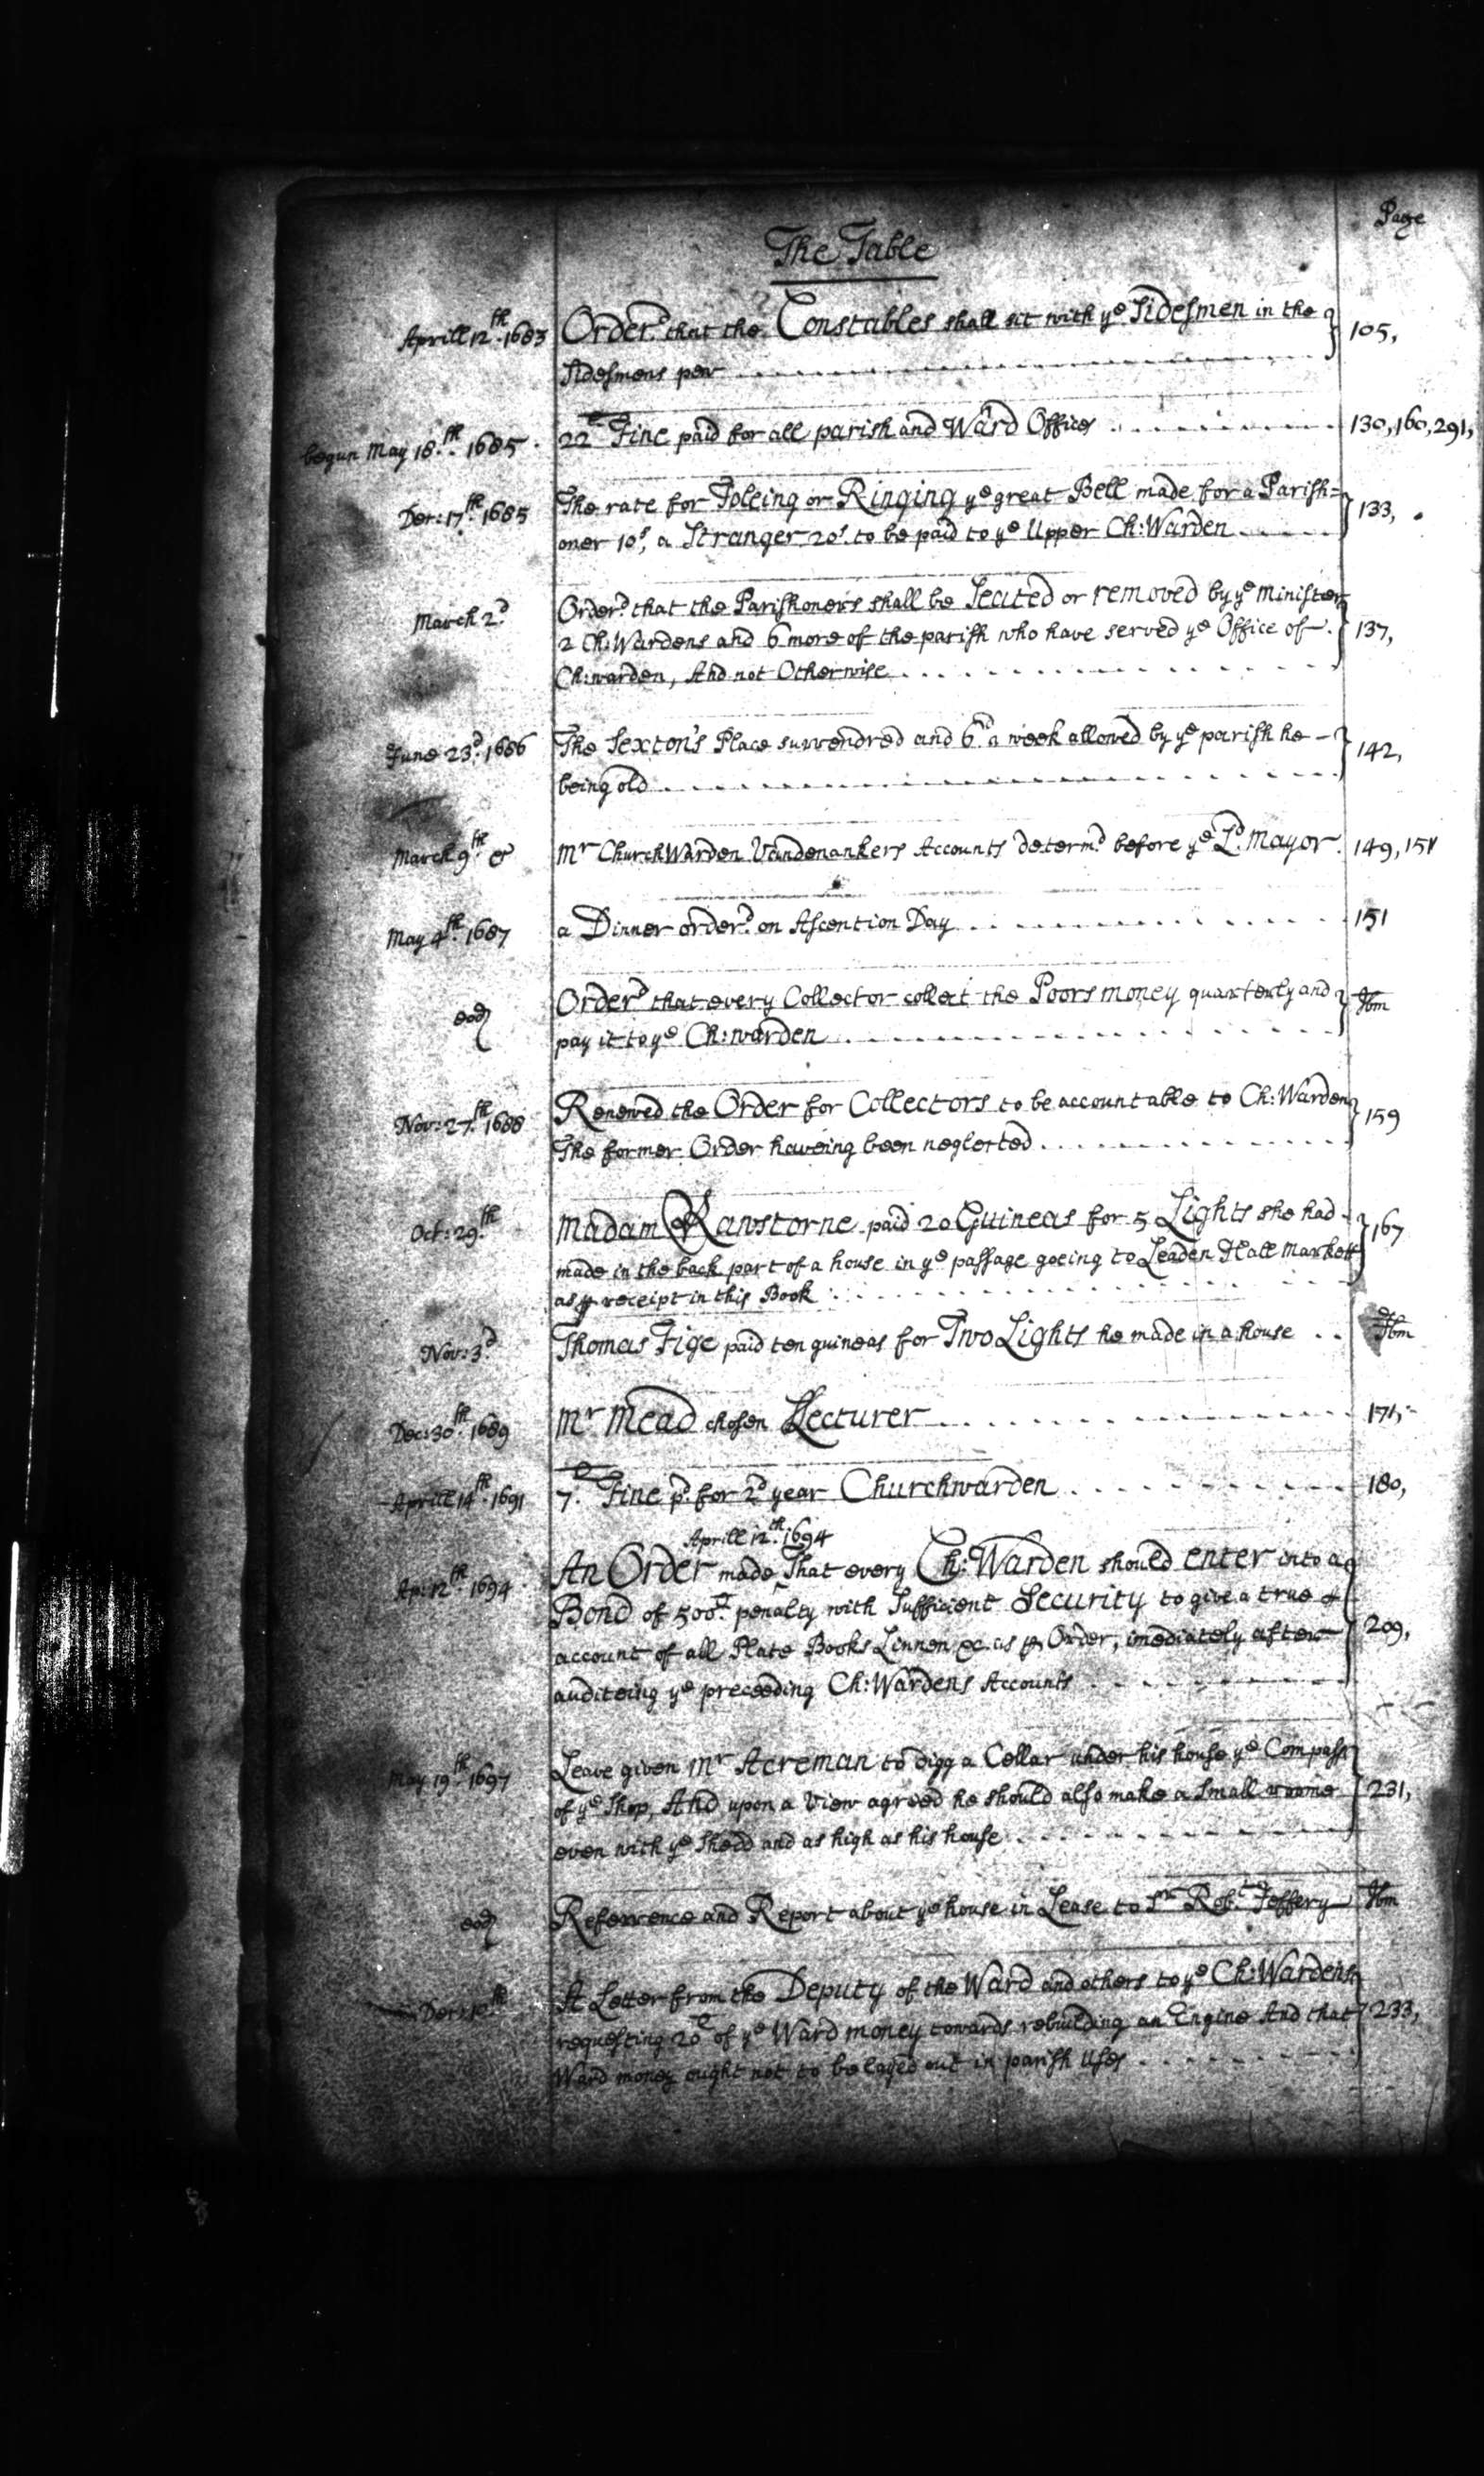 Page
The Table
Aprill 12th. 1683 Order'd that the Constables shall sit with ye Sidesmen in the 105,
Sidesmens pew
begun May 18th. 1685. 22£ Fine paid for all parish and Ward Offices 130, 160, 291,
Dec: 17th. 1685 The rate for Toleing or Ringing ye great Bell made for a Parish=
oner 10s, a Stranger 20s. to be paid to ye Upper Ch: Warden 133,
March 2d. Order'd that the Parishoners shall be Seated or removed by ye minister
2 Ch: Wardens and 6 more of the parish who have served ye Office of 137,
Ch: warden, And not Otherwise
June 23d. 1686 The Sexton's Place surrendred and 6d a week allowed by ye parish he 142,
being old
March 9th. & mr Church Warden Vandenankers Accounts determ'd before ye Ld. Mayor. 149, 151
May 4th. 1687 a Dinner order'd on Ascention Day 151
eod Order'd that every Collector collect the Poors money quarterly and Ibm
pay it to ye Ch: warden
Nov: 27th. 1688 Renewed the Order for Collectors to be accountable to Ch: Warden 159
The former Order haveing been neglected
Oct: 29th. Madam Rawstorne paid 20 Guineas for 5 Lights she had 167
made in the back part of a house in ye passage goeing to Leaden Hall Markett
as ꝑ receipt in this Book
Nov: 3d. Thomas Fige paid ten guineas for Two Lights he made in a house Ibm
Dec: 30th. 1689 mr Mead chosen Lecturer 171,
Aprill 14th. 1691 7£. Fine pd. for 2d year Churchwarden 180,
Aprill 12th. 1694
Ap: 12th. 1694. An Order made That every Ch: Warden should enter into a
Bond of 500£. penalty with Sufficient Security to give a true
account of all Plate Books Linnen &c. as ꝑ Order, imediately after 209,
auditeing ye preceeding Ch: Wardens Accounts
May 19th. 1697 Leave given mr Acreman to digg a Cellar under his house ye Compass
of ye Shop, And upon a View agreed he should also make a small roome 231,
even with ye Shedd and as high as his house
eod Reference and Report about ye house in Lease to Sr Robt. Jeffery Ibm
Dec: 10th A Letter from the Deputy of the Ward and others to ye Ch: Wardens
requesting 20£ of ye Ward money towards rebuilding an Engine And that 233,
Ward money ought not to be layed out in parish Uses